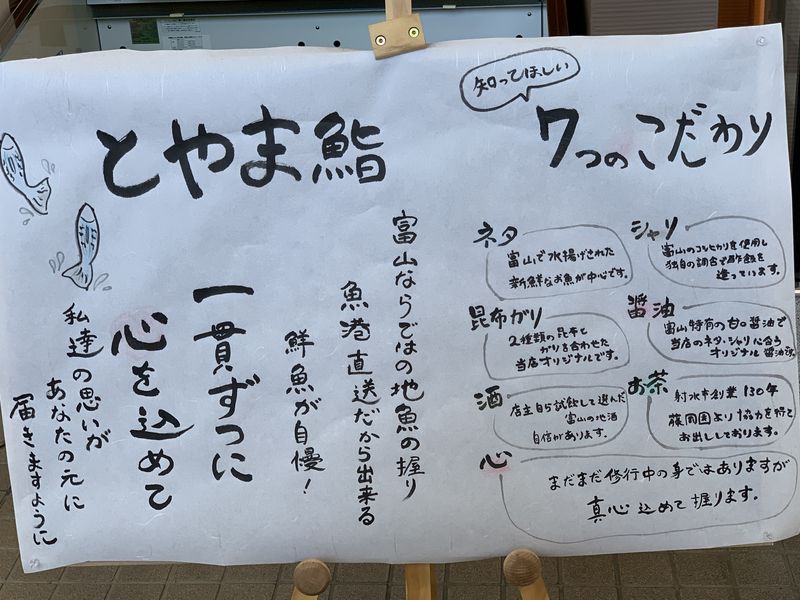 とやま鮨
富山ならではの地魚の握り
魚港直送だから出来る
鮮魚が自慢!
一貫ずつに
心を込めて
私達の思いが
あなたの元に
届きますように
知ってほしい
7つのこだわり
ネタ
富山で水揚げされた
新鮮なお魚が中心です。
シャリ
富山のコシヒカリを使用し
独自の調合で酢飯を
造っています。
昆布がり
2種類の昆布と
がりを合わせた
当店オリジナルです。
醤油
富山特有の甘口醤油で
当店のネタ・シャリに合う
オリジナル醤油です。
酒
店主自ら試飲して選んだ
富山の地酒
自信があります。
お茶
射水市創業130年
園より協力を得て
お出ししております。
心
まだまだ修行中の身ではありますが
真心込めて握ります。